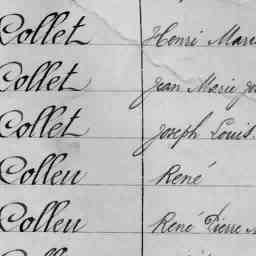 Collet Henri Marie
Collet Jean Marie
Collet Joseph Louis
Colleu René
Colleu René Pierre